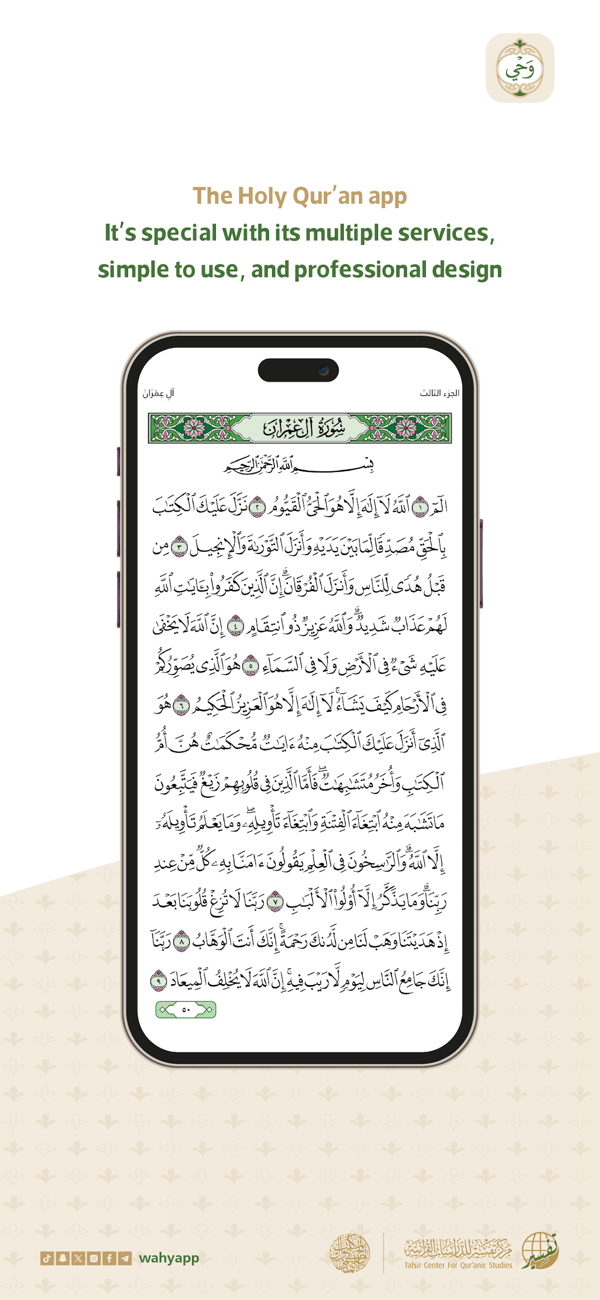 وَحْي
The Holy Qur'an app
It's special with its multiple services,
simple to use, and professional design
الجزء الثالث
آلِ عِمْرَان
سُورَةُ آلِ عِمْرَان
بِسْمِ اللَّهِ الرَّحْمَٰنِ الرَّحِيمِ
الٓمٓ ١ ٱللَّهُ لَآ إِلَٰهَ إِلَّا هُوَ ٱلْحَىُّ ٱلْقَيُّومُ ٢ نَزَّلَ عَلَيْكَ ٱلْكِتَٰبَ
بِٱلْحَقِّ مُصَدِّقًا لِّمَا بَيْنَ يَدَيْهِ وَأَنزَلَ ٱلتَّوْرَىٰةَ وَٱلْإِنجِيلَ ٣ مِن
قَبْلُ هُدًى لِّلنَّاسِ وَأَنزَلَ ٱلْفُرْقَانَۗ إِنَّ ٱلَّذِينَ كَفَرُوا۟ بِـَٔايَٰتِ ٱللَّهِ
لَهُمْ عَذَابٌ شَدِيدٌۗ وَٱللَّهُ عَزِيزٌ ذُو ٱنتِقَامٍ ٤ إِنَّ ٱللَّهَ لَا يَخْفَىٰ
عَلَيْهِ شَىْءٌ فِى ٱلْأَرْضِ وَلَا فِى ٱلسَّمَآءِ ٥ هُوَ ٱلَّذِى يُصَوِّرُكُمْ
فِى ٱلْأَرْحَامِ كَيْفَ يَشَآءُۚ لَآ إِلَٰهَ إِلَّا هُوَ ٱلْعَزِيزُ ٱلْحَكِيمُ ٦ هُوَ
ٱلَّذِىٓ أَنزَلَ عَلَيْكَ ٱلْكِتَٰبَ مِنْهُ ءَايَٰتٌ مُّحْكَمَٰتٌ هُنَّ أُمُّ
ٱلْكِتَٰبِ وَأُخَرُ مُتَشَٰبِهَٰتٌۖ فَأَمَّا ٱلَّذِينَ فِى قُلُوبِهِمْ زَيْغٌ فَيَتَّبِعُونَ
مَا تَشَٰبَهَ مِنْهُ ٱبْتِغَآءَ ٱلْفِتْنَةِ وَٱبْتِغَآءَ تَأْوِيلِهِۦۖ وَمَا يَعْلَمُ تَأْوِيلَهُۥٓ
إِلَّا ٱللَّهُۗ وَٱلرَّٰسِخُونَ فِى ٱلْعِلْمِ يَقُولُونَ ءَامَنَّا بِهِۦ كُلٌّ مِّنْ عِندِ
رَبِّنَاۗ وَمَا يَذَّكَّرُ إِلَّآ أُو۟لُوا۟ ٱلْأَلْبَٰبِ ٧ رَبَّنَا لَا تُزِغْ قُلُوبَنَا بَعْدَ
إِذْ هَدَيْتَنَا وَهَبْ لَنَا مِن لَّدُنكَ رَحْمَةًۚ إِنَّكَ أَنتَ ٱلْوَهَّابُ ٨ رَبَّنَآ
إِنَّكَ جَامِعُ ٱلنَّاسِ لِيَوْمٍ لَّا رَيْبَ فِيهِۚ إِنَّ ٱللَّهَ لَا يُخْلِفُ ٱلْمِيعَادَ ٩
٥٠
wahyapp
مركز تفسير للدراسات القرآنية
Tafsir Center For Qur'anic Studies
تفسير